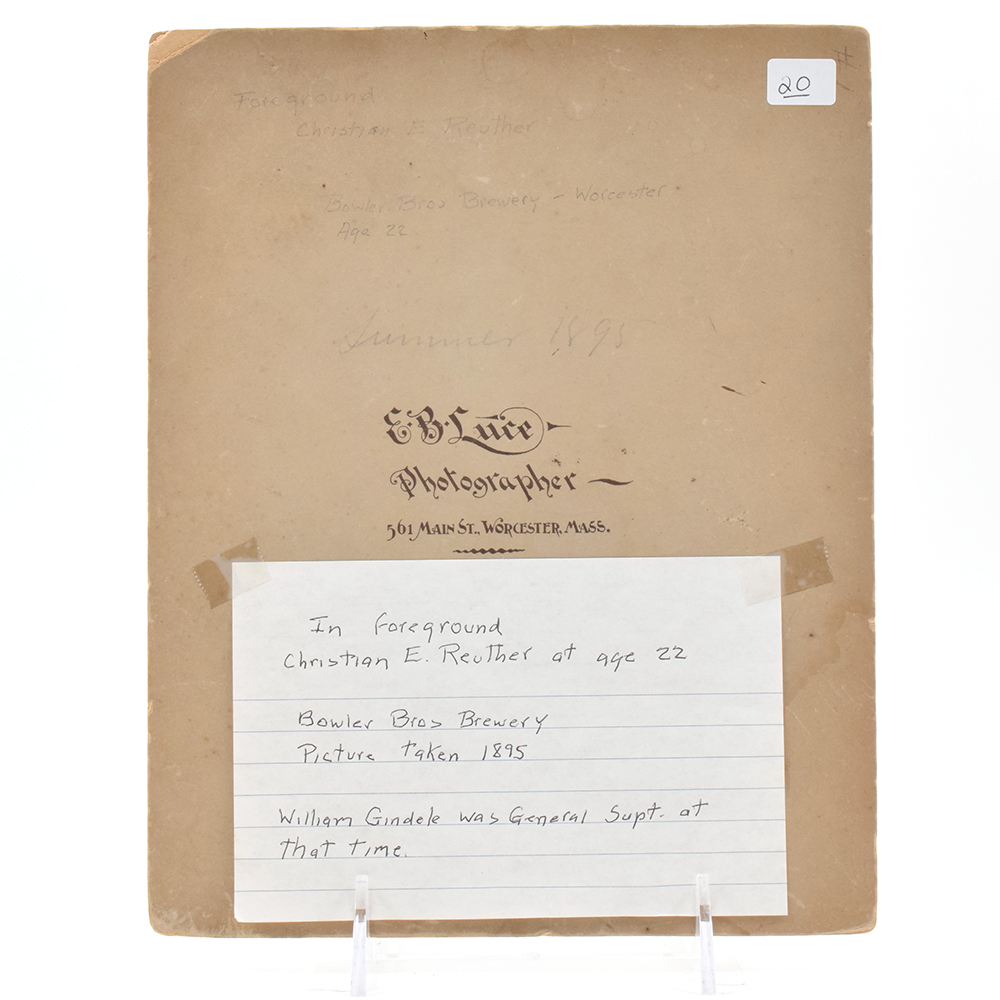 20
#
Foreground
Christian E Reuther
Bowler Bros Brewery - Worcester
Age 22
Summer 1895
E. B. Luce
Photographer
561 Main St., Worcester, Mass.
In foreground
Christian E. Reuther at age 22
Bowler Bros Brewery
Picture taken 1895
William Gindele was General Supt. at
that time.